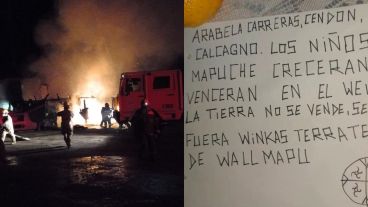 ARABELA CARRERAS, CENDON,
CALCAGNO. LOS NIÑOS
MAPUCHE CRECERAN
VENCERAN EN EL WE
LA TIERRA NO SE VENDE, SE
FUERA WINKAS TERRATE
DE WALLMAPU